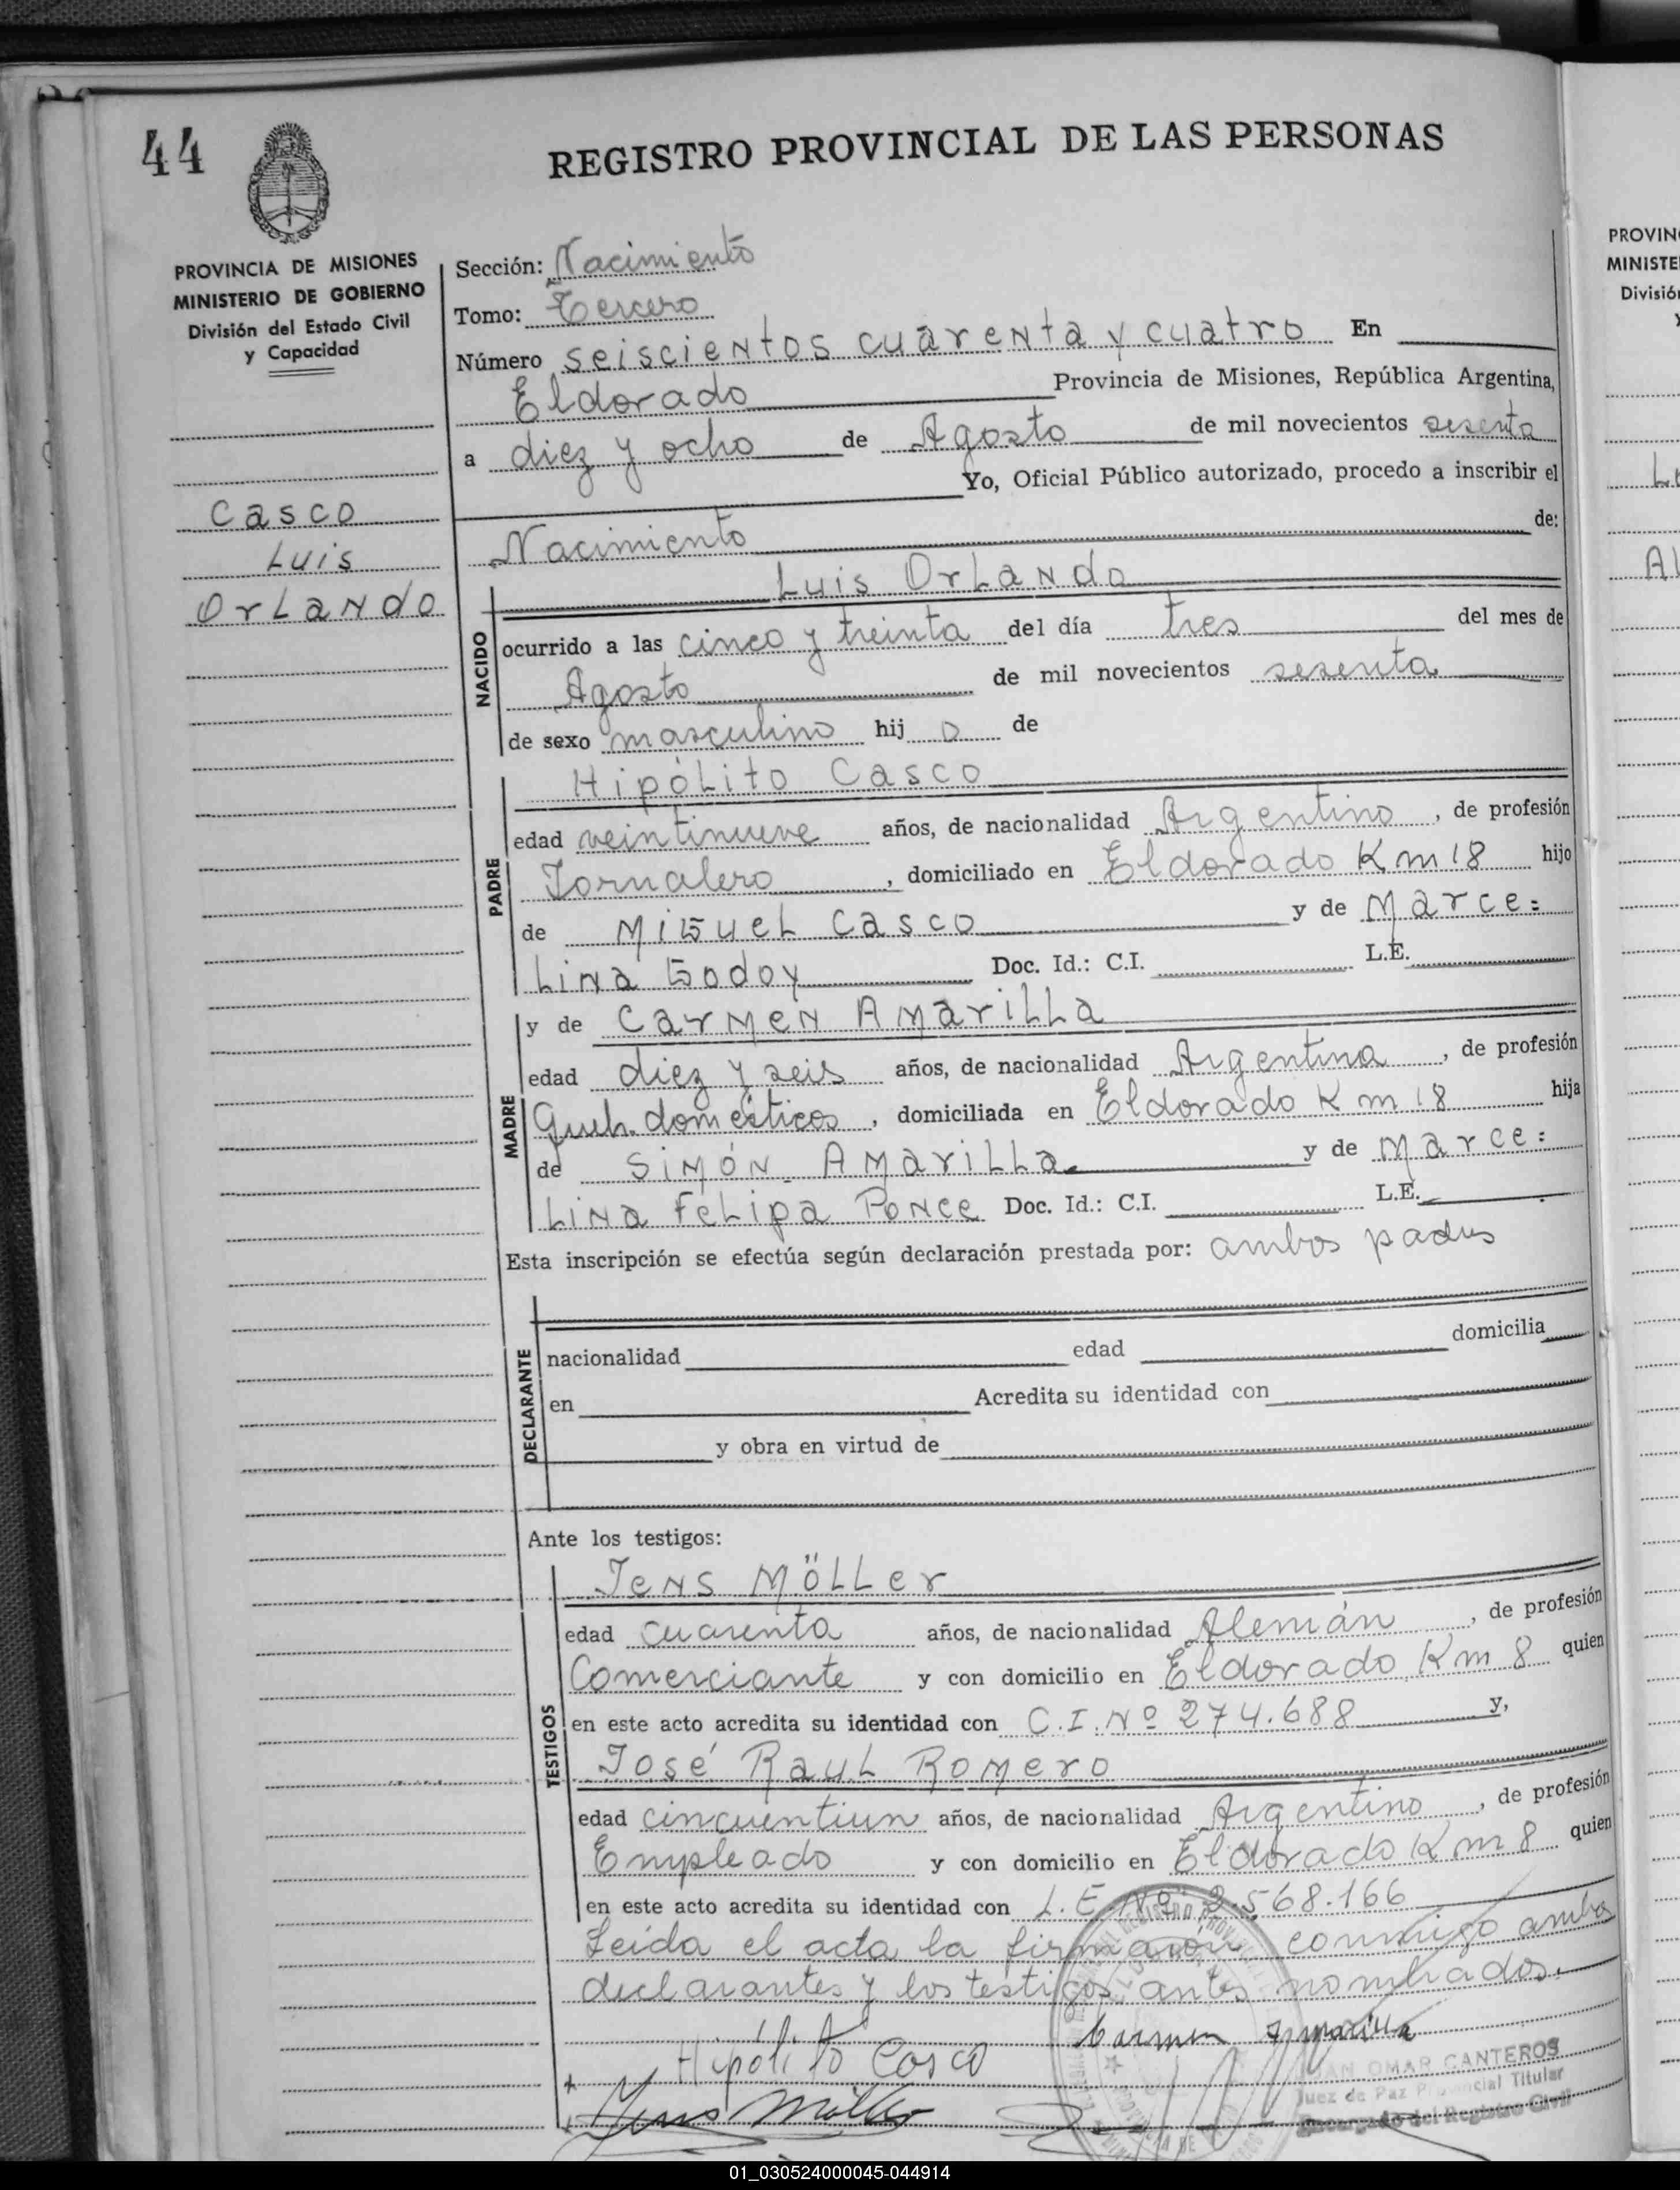 44
REGISTRO PROVINCIAL DE LAS PERSONAS
PROVINCIA DE MISIONES
MINISTERIO DE GOBIERNO
División del Estado Civil
y Capacidad
Casco
Luis
Orlando
Sección: Nacimiento
Tomo: Tercero
Número seiscientos cuarenta y cuatro En
Eldorado Provincia de Misiones, República Argentina,
a diez y ocho de Agosto de mil novecientos sesenta
Yo, Oficial Público autorizado, procedo a inscribir el
Nacimiento de:
NACIDO
Luis Orlando
ocurrido a las cinco y treinta del día tres del mes de
Agosto de mil novecientos sesenta
de sexo masculino hij o de
PADRE
Hipólito Casco
edad veintinueve años, de nacionalidad Argentino, de profesión
Jornalero, domiciliado en Eldorado Km 18 hijo
de Miguel Casco y de Marce=
lina Godoy Doc. Id.: C.I. L.E.
MADRE
y de Carmen Amarilla
edad diez y seis años, de nacionalidad Argentina, de profesión
Queh. domésticos, domiciliada en Eldorado Km 18 hija
de Simón Amarilla y de Marce=
lina Felipa Ponce Doc. Id.: C.I. L.E.
Esta inscripción se efectúa según declaración prestada por: ambos padres
DECLARANTE
nacionalidad edad domicilia
en Acredita su identidad con
y obra en virtud de
Ante los testigos:
TESTIGOS
Jens Möller
edad cuarenta años, de nacionalidad Alemán, de profesión
Comerciante y con domicilio en Eldorado Km 8 quien
en este acto acredita su identidad con C.I. Nº 274.688 y,
José Raul Romero
edad cincuentiun años, de nacionalidad Argentino, de profesión
Empleado y con domicilio en Eldorado Km 8 quien
en este acto acredita su identidad con L.E. Nº 2.568.166
Leída el acta la firmaron conmigo ambos
declarantes y los testigos antes nombrados.
Hipólito Casco Carmen Amarilla
Jens Möller
OMAR CANTEROS
Juez de Paz Provincial Titular
Encargado del Registro Civil
PROVIN
MINISTE
Divisió
01_030524000045-044914